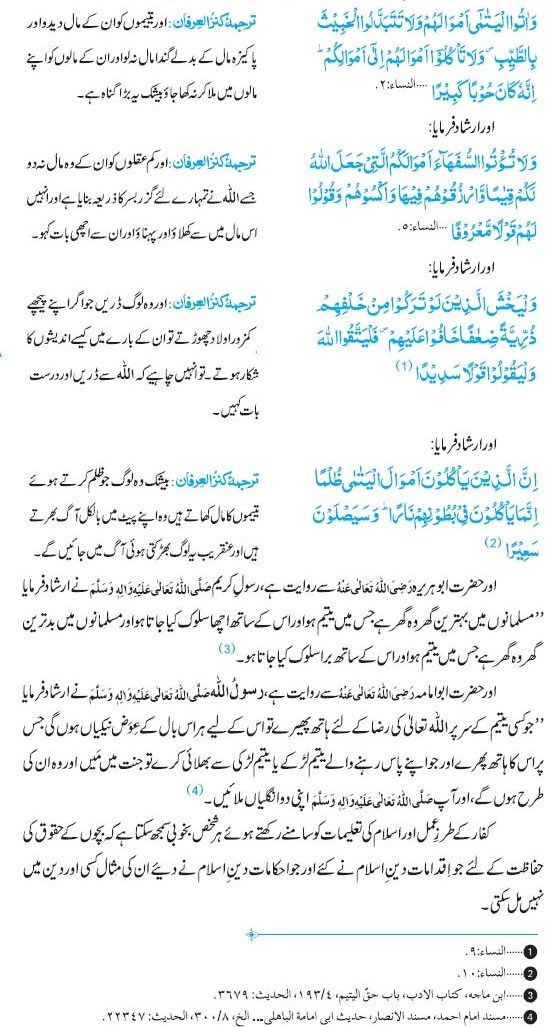 وَاٰتُوا الْیَتٰمٰۤى اَمْوَالَهُمْ وَلَا تَتَبَدَّلُوا الْخَبِیْثَ
بِالطَّیِّبِ ۪ وَلَا تَاْكُلُوْۤا اَمْوَالَهُمْ اِلٰۤى اَمْوَالِكُمْ ؕ
اِنَّهٗ كَانَ حُوْبًا كَبِیْرًا ....النساء:۲.
ترجمۂ کنزُالعِرفان: اور یتیموں کو ان کے مال دیدو اور
پاکیزہ مال کے بدلے گندا مال نہ لو اور ان کے مالوں کو اپنے
مالوں میں ملا کر نہ کھا جاؤ بیشک یہ بڑا گناہ ہے۔
اور ارشاد فرمایا:
وَلَا تُؤْتُوا السُّفَهَآءَ اَمْوَالَكُمُ الَّتِیْ جَعَلَ اللّٰهُ
لَكُمْ قِیٰمًا وَّارْزُقُوْهُمْ فِیْهَا وَاكْسُوْهُمْ وَقُوْلُوْا
لَهُمْ قَوْلًا مَّعْرُوْفًا ....النساء:۵.
ترجمۂ کنزُالعِرفان: اور کم عقلوں کو ان کے وہ مال نہ دو
جسے اللہ نے تمہارے لئے گزر بسر کا ذریعہ بنایا ہے اور انہیں
اس مال میں سے کھلاؤ اور پہناؤ اور ان سے اچھی بات کہو۔
اور ارشاد فرمایا:
وَلْیَخْشَ الَّذِیْنَ لَوْ تَرَكُوْا مِنْ خَلْفِهِمْ
ذُرِّیَّةً ضِعٰفًا خَافُوْا عَلَیْهِمْ ۪ فَلْیَتَّقُوا اللّٰهَ
وَلْیَقُوْلُوْا قَوْلًا سَدِیْدًا (1)
ترجمۂ کنزُالعِرفان: اور وہ لوگ ڈریں جو اگر اپنے پیچھے
کمزور اولاد چھوڑتے تو ان کے بارے میں کیسے اندیشوں کا
شکار ہوتے۔ تو انہیں چاہیے کہ اللہ سے ڈریں اور درست
بات کہیں۔
اور ارشاد فرمایا:
اِنَّ الَّذِیْنَ یَاْكُلُوْنَ اَمْوَالَ الْیَتٰمٰى ظُلْمًا
اِنَّمَا یَاْكُلُوْنَ فِیْ بُطُوْنِهِمْ نَارًا ؕ وَسَیَصْلَوْنَ
سَعِیْرًا (2)
ترجمۂ کنزُالعِرفان: بیشک وہ لوگ جو ظلم کرتے ہوئے
یتیموں کا مال کھاتے ہیں وہ اپنے پیٹ میں بالکل آگ بھرتے
ہیں اور عنقریب یہ لوگ بھڑکتی ہوئی آگ میں جائیں گے۔
اور حضرت ابو ہریرہ رَضِیَ اللہُ تَعَالٰی عَنْہُ سے روایت ہے، رسولِ کریم صَلَّی اللہُ تَعَالٰی عَلَیْہِ وَاٰلِہٖ وَسَلَّمَ نے ارشاد فرمایا
’’مسلمانوں میں بہترین گھر وہ گھر ہے جس میں یتیم ہو اور اس کے ساتھ اچھا سلوک کیا جاتا ہو اور مسلمانوں میں بدترین
گھر وہ گھر ہے جس میں یتیم ہو اور اس کے ساتھ برا سلوک کیا جاتا ہو۔ (3)
اور حضرت ابو امامہ رَضِیَ اللہُ تَعَالٰی عَنْہُ سے روایت ہے، رسولُ اللہ صَلَّی اللہُ تَعَالٰی عَلَیْہِ وَاٰلِہٖ وَسَلَّمَ نے ارشاد فرمایا
’’جو کسی یتیم کے سر پر اللہ تعالیٰ کی رضا کے لئے ہاتھ پھیرے تو اس کے لیے ہر اس بال کے عِوَض نیکیاں ہوں گی جس
پر اس کا ہاتھ پھرے اور جو اپنے پاس رہنے والے یتیم لڑکے یا یتیم لڑکی سے بھلائی کرے تو جنت میں مَیں اور وہ ان کی
طرح ہوں گے، اور آپ صَلَّی اللہُ تَعَالٰی عَلَیْہِ وَاٰلِہٖ وَسَلَّمَ اپنی دو انگلیاں ملائیں۔ (4)
کفار کے طرزِ عمل اور اسلام کی تعلیمات کو سامنے رکھتے ہوئے ہر شخص بخوبی سمجھ سکتا ہے کہ بچوں کے حقوق کی
حفاظت کے لئے جو اِقدامات دینِ اسلام نے کئے اور جو احکامات دینِ اسلام نے دیئے ان کی مثال کسی اور دین میں
نہیں مل سکتی۔
1 ......النساء:۹.
2 ......النساء:۱۰.
3 ......ابن ماجه، کتاب الادب، باب حقّ الیتیم، ۱۹۳/۴، الحدیث: ۳۶۷۹.
4 ......مسند امام احمد، مسند الانصار، حدیث ابی امامة الباهلی... الخ، ۳۰۰/۸، الحدیث: ۲۲۳۴۷.